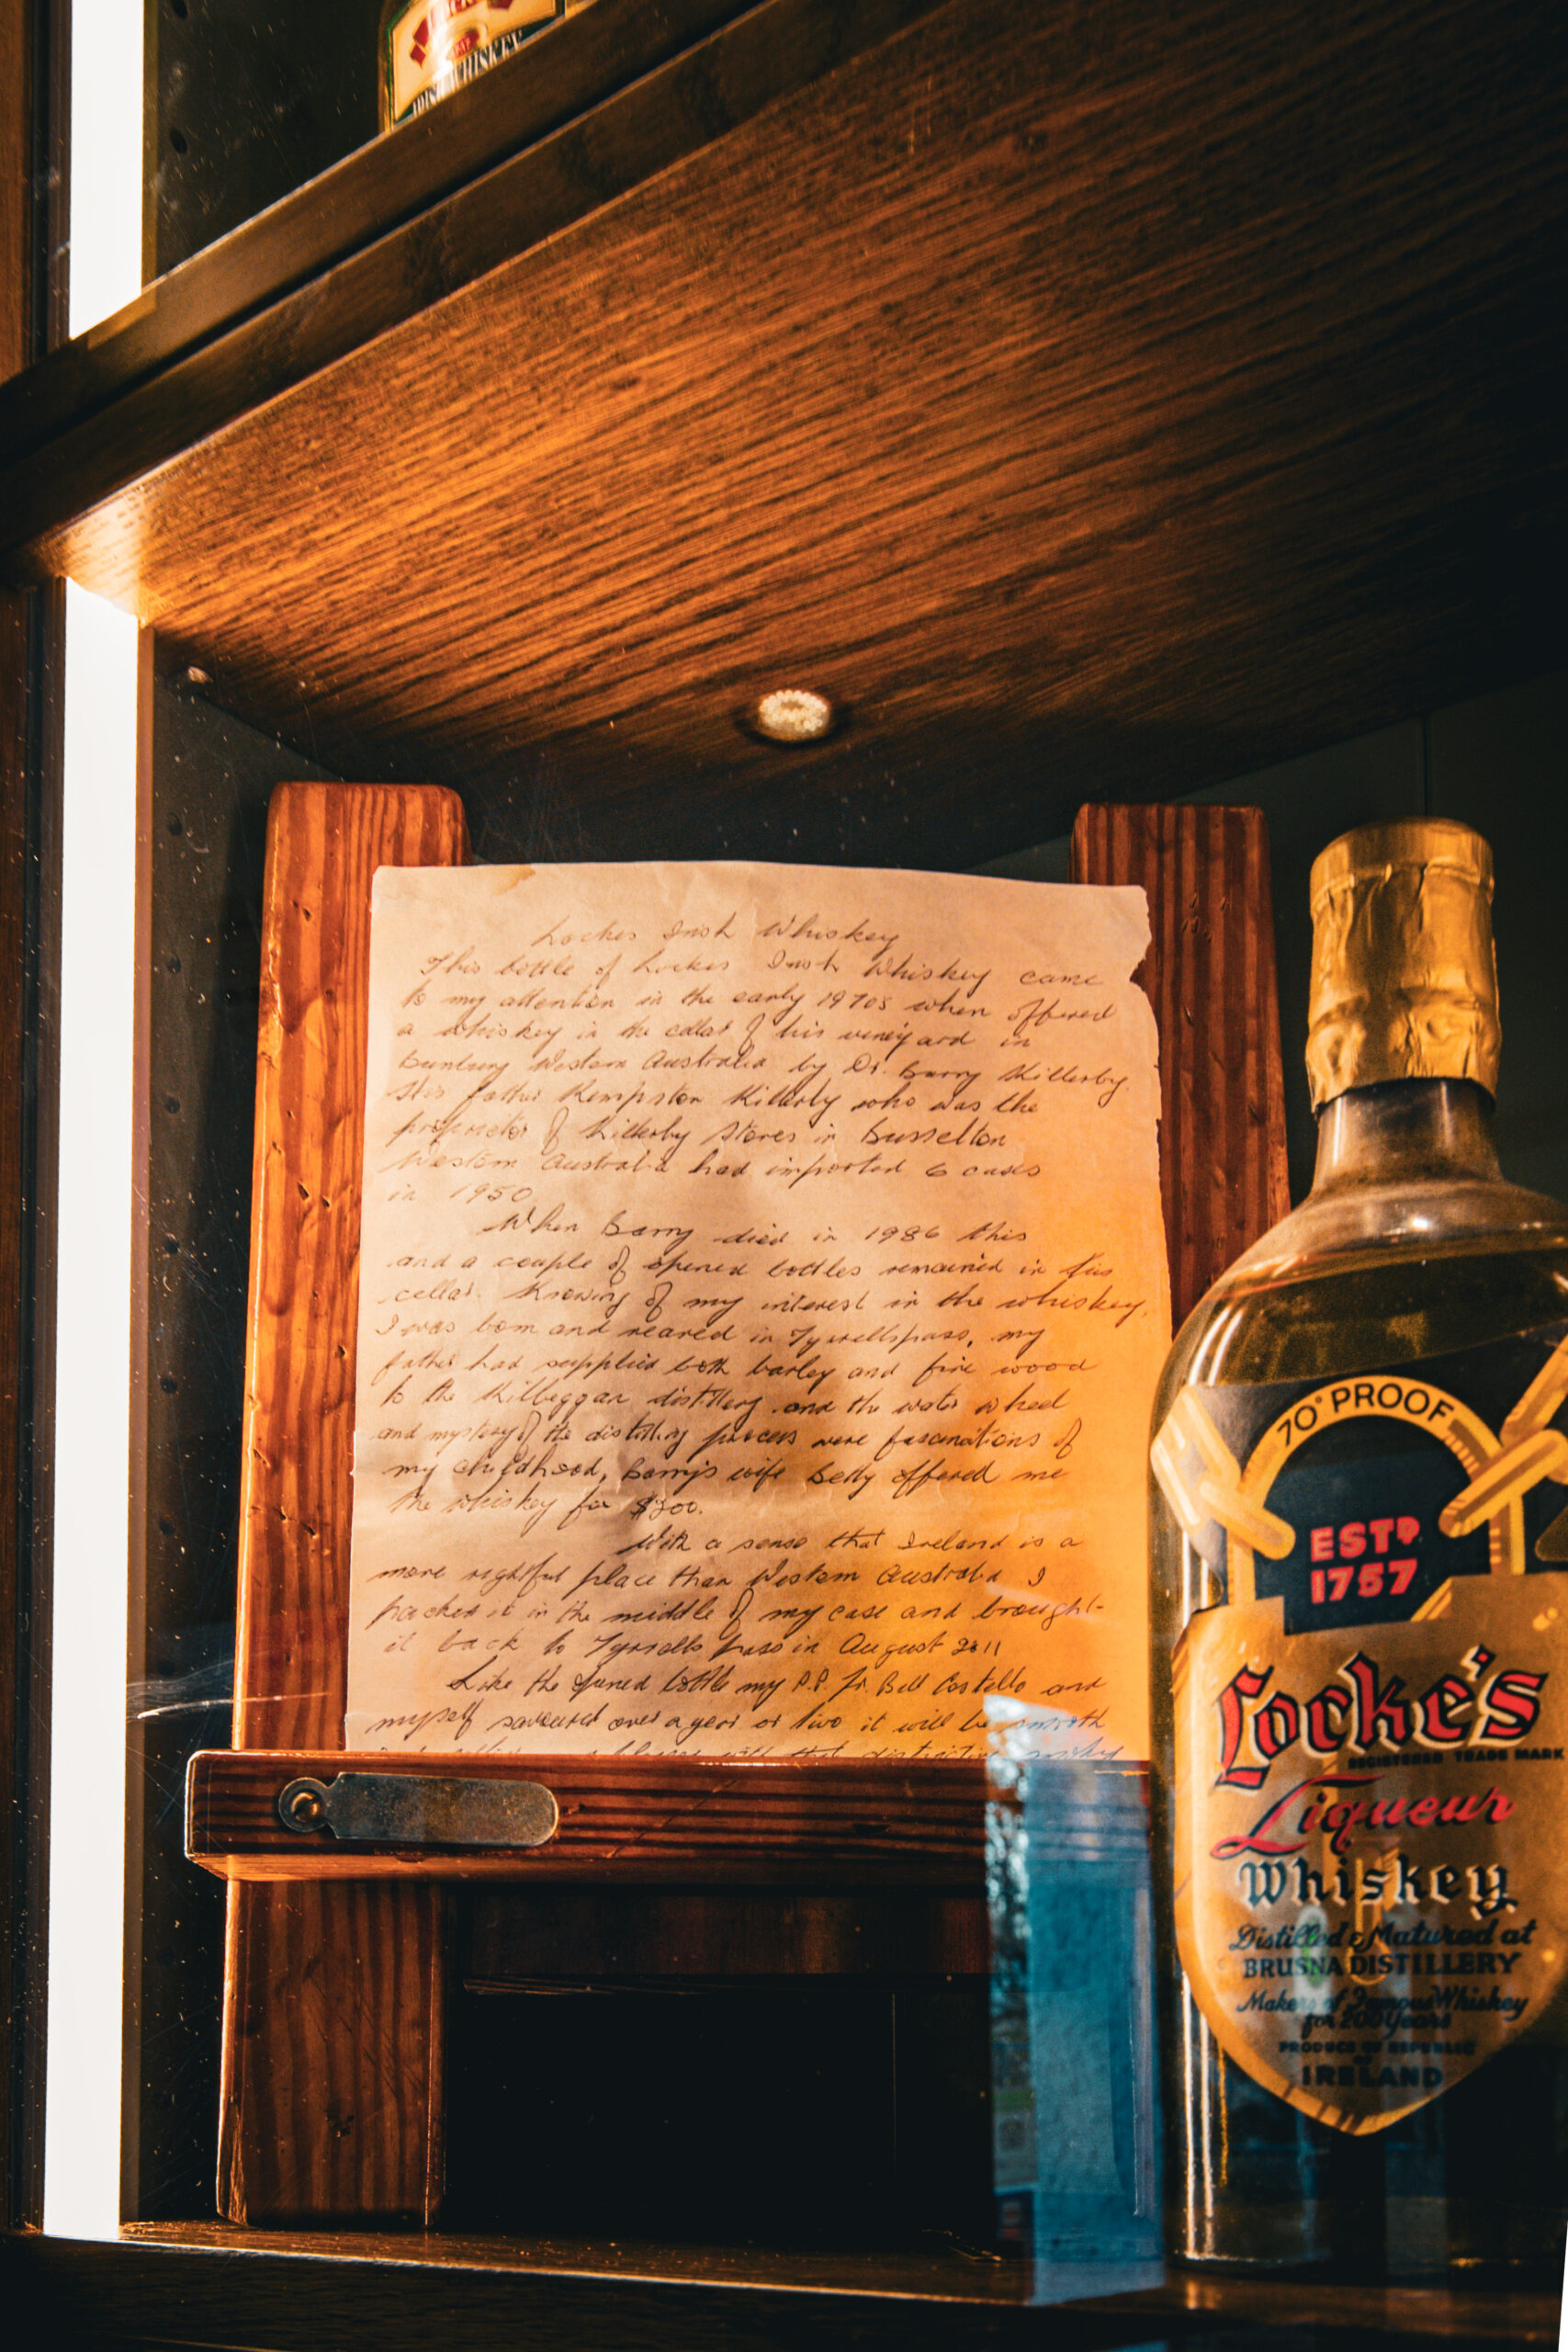 IRISH WHISKEY
Lockes Irish Whiskey
This bottle of Lockes Irish Whiskey came
to my attention in the early 1970s when offered
a whiskey in the cellar of his vineyard in
Bunbury Western Australia by Dr. Barry Killerby.
His father Kempston Killerby who was the
proprietor of Killerby Stores in Busselton
Western Australia had imported 6 cases
in 1950
When Barry died in 1986 this
and a couple of opened bottles remained in his
cellar. Knowing of my interest in the whiskey,
I was born and reared in Tyrrellspass, my
father had supplied both barley and fire wood
to the Kilbeggan distillery and the water wheel
and mystery of the distilling process were fascinations of
my childhood, Barry's wife Betty offered me
the whiskey for $200.
With a sense that Ireland is a
more rightful place than Western Australia I
packed it in the middle of my case and brought
it back to Tyrrells pass in August 2011
Like the opened bottle my P.P. Fr. Bill Costello and
myself savoured over a year or two it will be smooth
with that distinctive smoky
70° PROOF
ESTD
1757
Locke's
REGISTERED TRADE MARK
Liqueur
Whiskey
Distilled & Matured at
BRUSNA DISTILLERY
Makers of Famous Whiskey
for 200 Years
PRODUCE OF REPUBLIC
OF
IRELAND